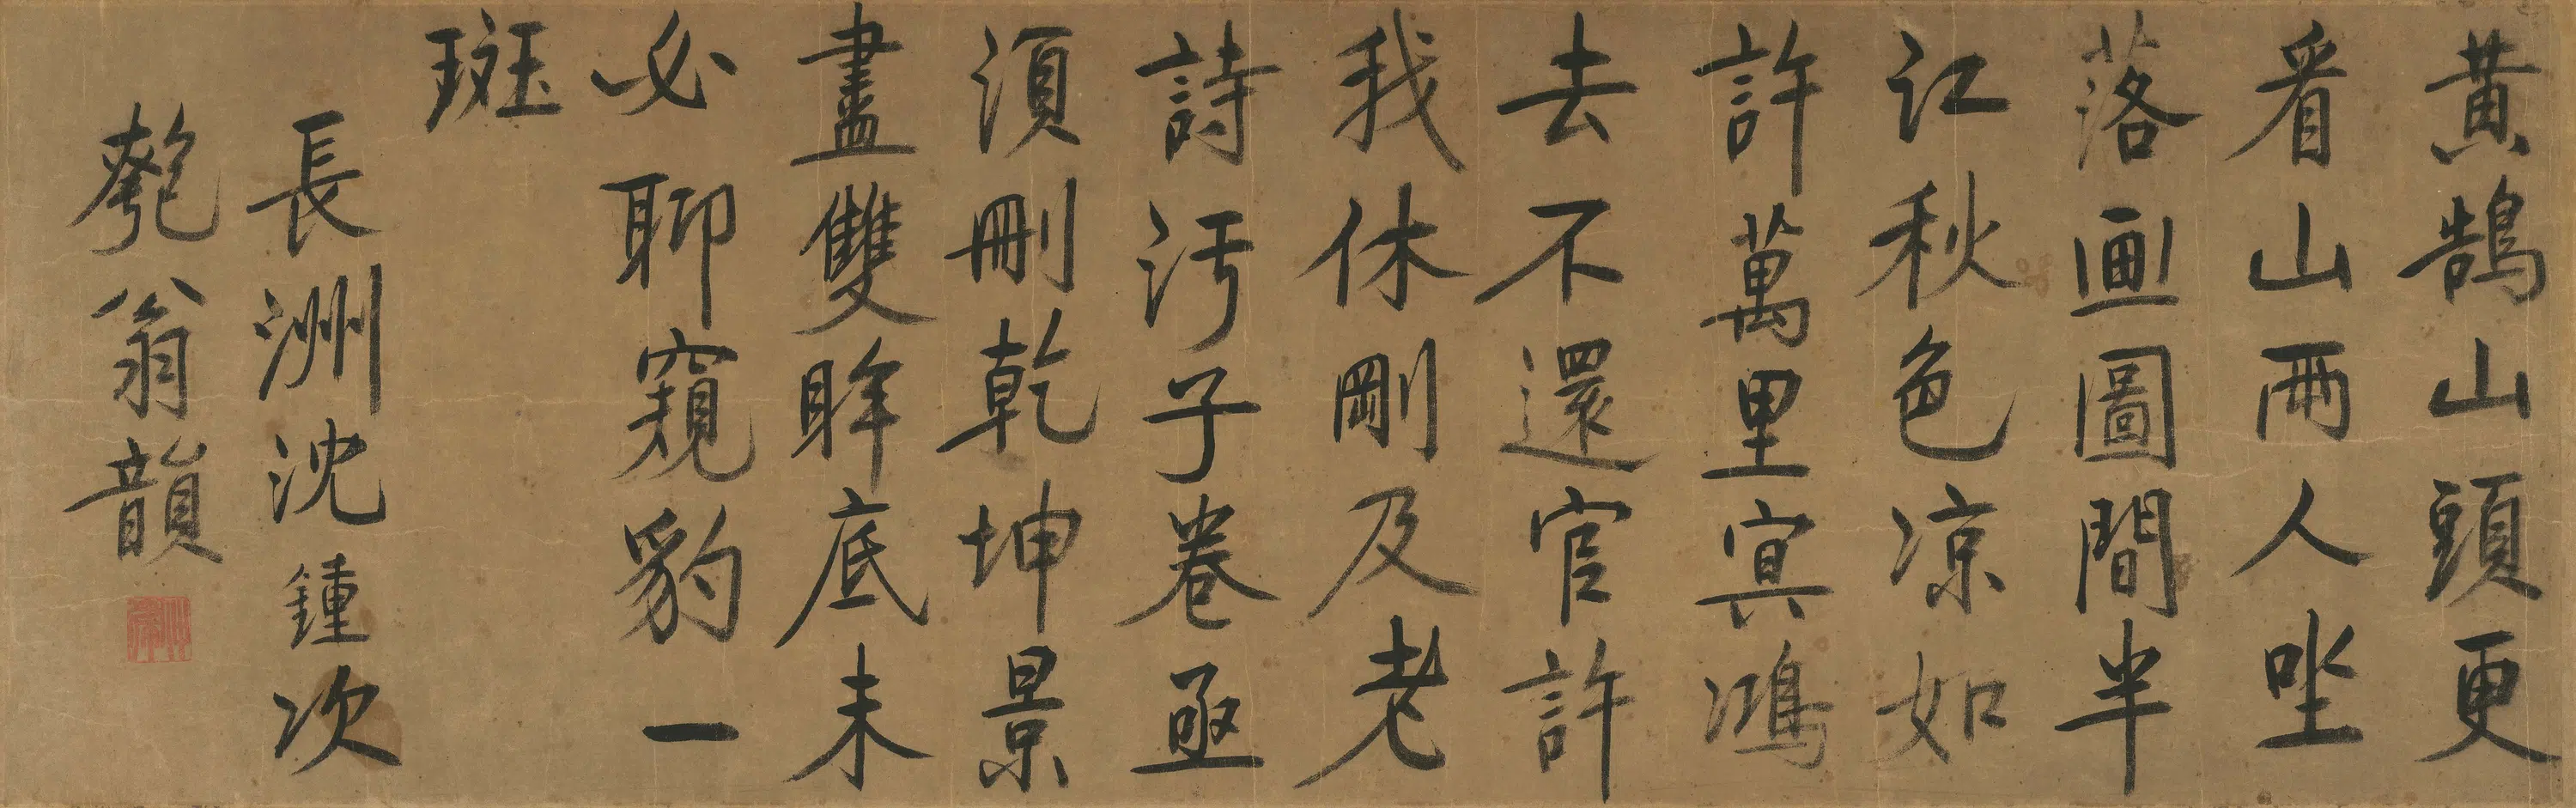 黄鵠山頭更
看山兩人坐
落画圖間半
江秋色凉如
許萬里㝠鴻
去不還官許
我休剛及老
詩汚子卷亟
湏刪乾坤景
盡雙眸底未
必聊窺豹一
斑
長洲沈鍾次
匏翁韻